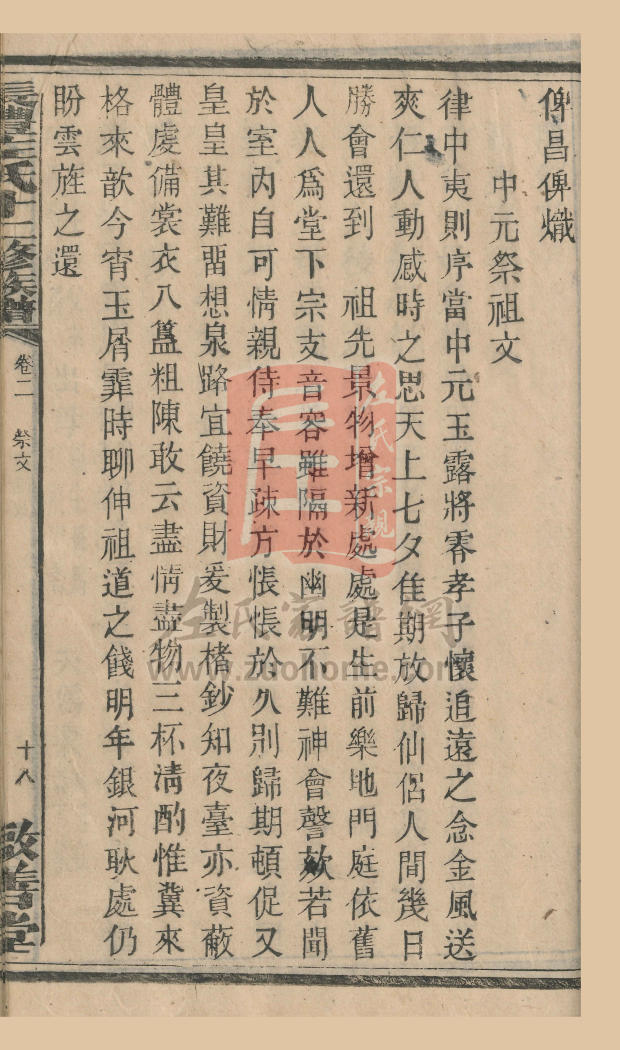 俾昌俾熾
中元祭祖文
律中夷則序當中元玉露將零孝子懷追遠之念金風送
爽仁人動感時之思天上七夕佳期放歸仙侶人間幾日
勝會還到　祖先景物增新處處是生前樂地門庭依舊
人人爲堂下宗支音容雖隔於幽明不難神會謦欬若聞
於室內自可情親侍奉早疎方悵悵於久別歸期頓促又
皇皇其難畱想泉路宜饒資財爰製楮鈔知夜臺亦資蔽
體處備裳衣八簋粗陳敢云盡情盡物三杯淸酌惟冀來
格來歆今宵玉屑霏時聊伸祖道之餞明年銀河耿處仍
盼雲旌之還
長灃左氏十二修族譜
卷二
祭文
十八
敬善堂
左氏宗親
左氏家譜網
www.zuohome.com